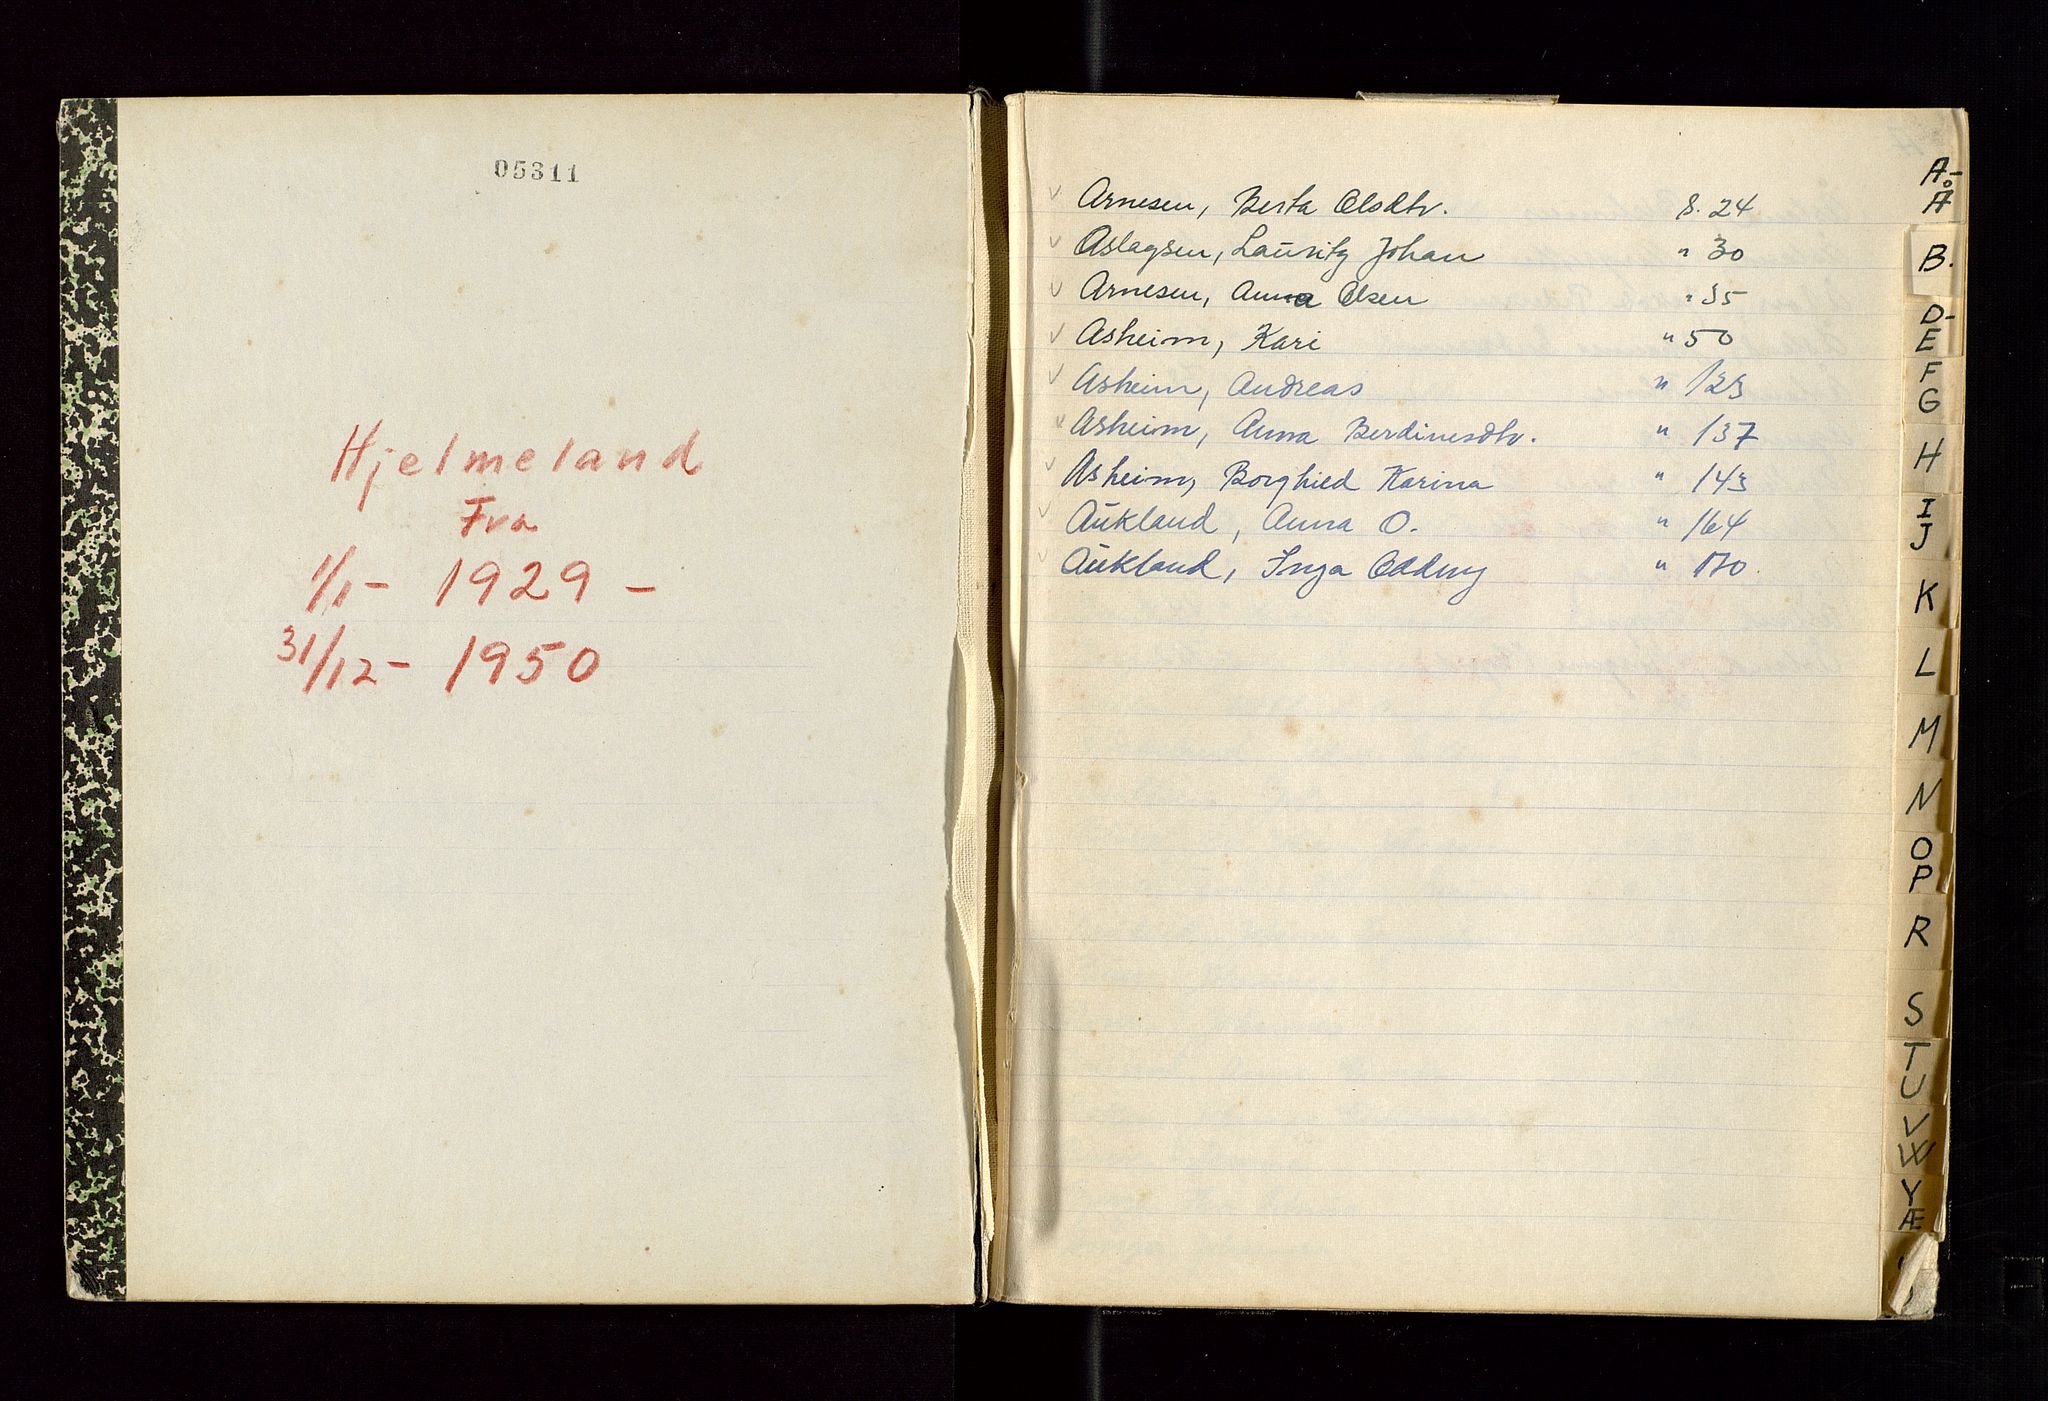 05311
Hjelmeland
Fra
1/1 - 1929 -
31/12 - 1950
Arnesen, Berta Olsdtr. S. 24
Aslagsen, Lauritz Johan " 30
Arnesen, Anna Olsen " 35
Asheim, Kari " 50
Asheim, Andreas " 123
Asheim, Anna Berdinesdtr. " 137
Asheim, Borghild Karina " 143
Aukland, Anna O. " 164
Aukland, Inga Oddny " 170
A-
Å
B.
D-
E
F
G
H
I
J
K
L
M
N
O
P
R
S
T
U
V
W
Y
Æ